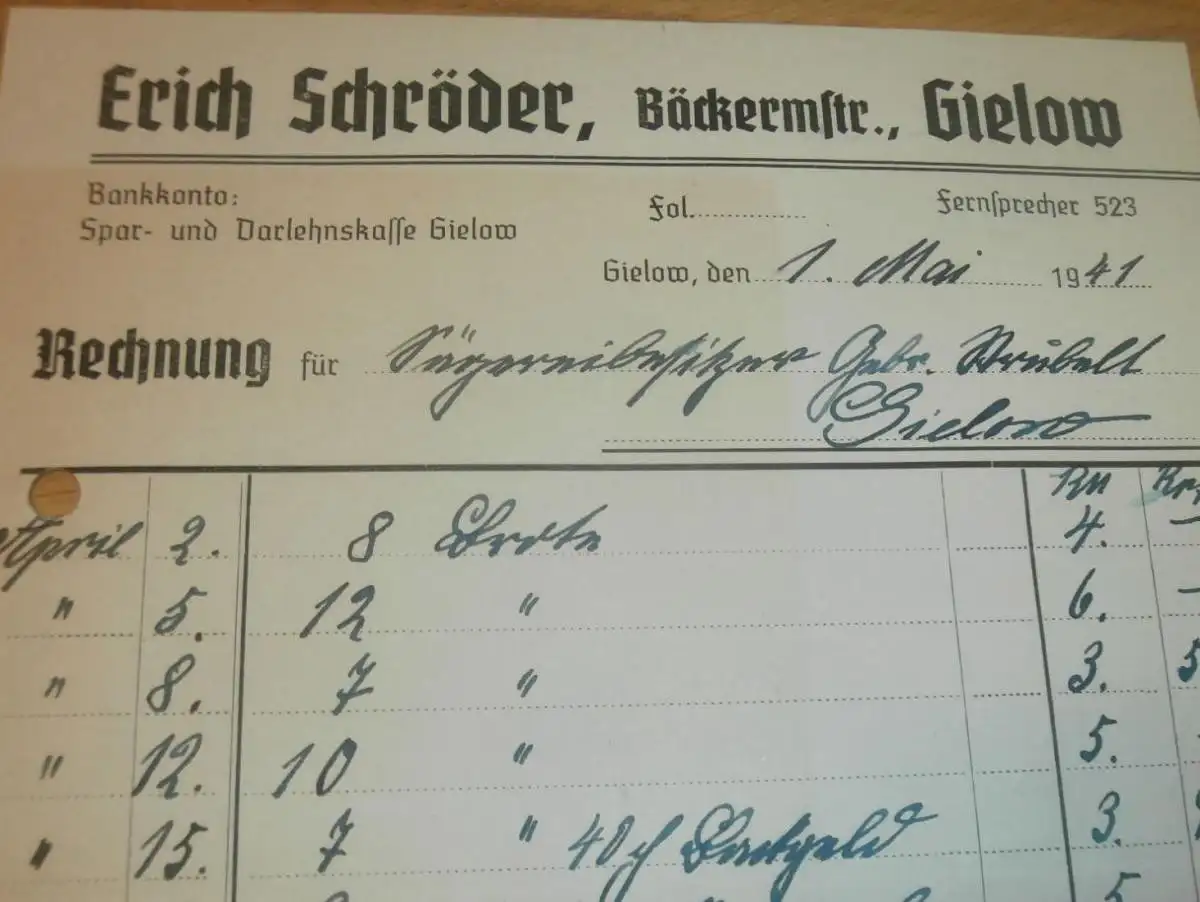 Erich Schröder, Bäckermstr., Gielow
Bankkonto:
Spar- und Darlehnskasse Gielow
Fol.
Fernsprecher 523
Gielow, den 1. Mai 1941
Rechnung für Sägereibesitzer Gebr. Strübelt
Gielow
RM
April 2. 8 Brote 4. —
" 5. 12 " 6. —
" 8. 7 " 3. 5
" 12. 10 " 5. -
" 15. 7 " 40 Backgeld 3.
5